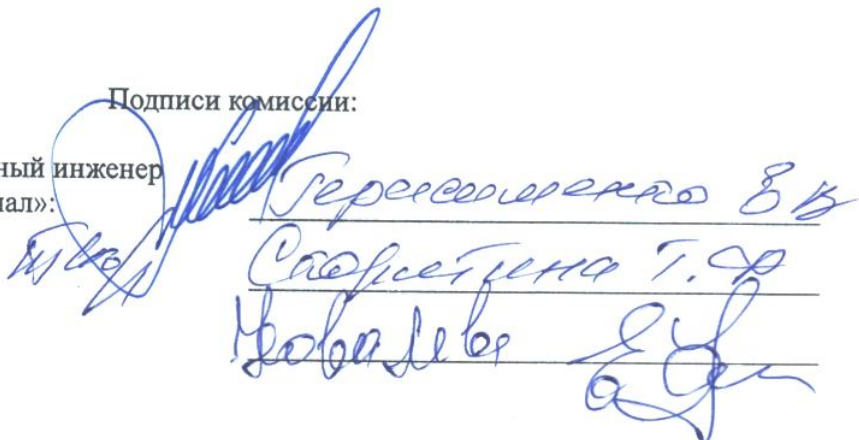 Подписи комиссии:
ный инженер
нал»:
Герасименко В В
Т.Ф
Ковалева